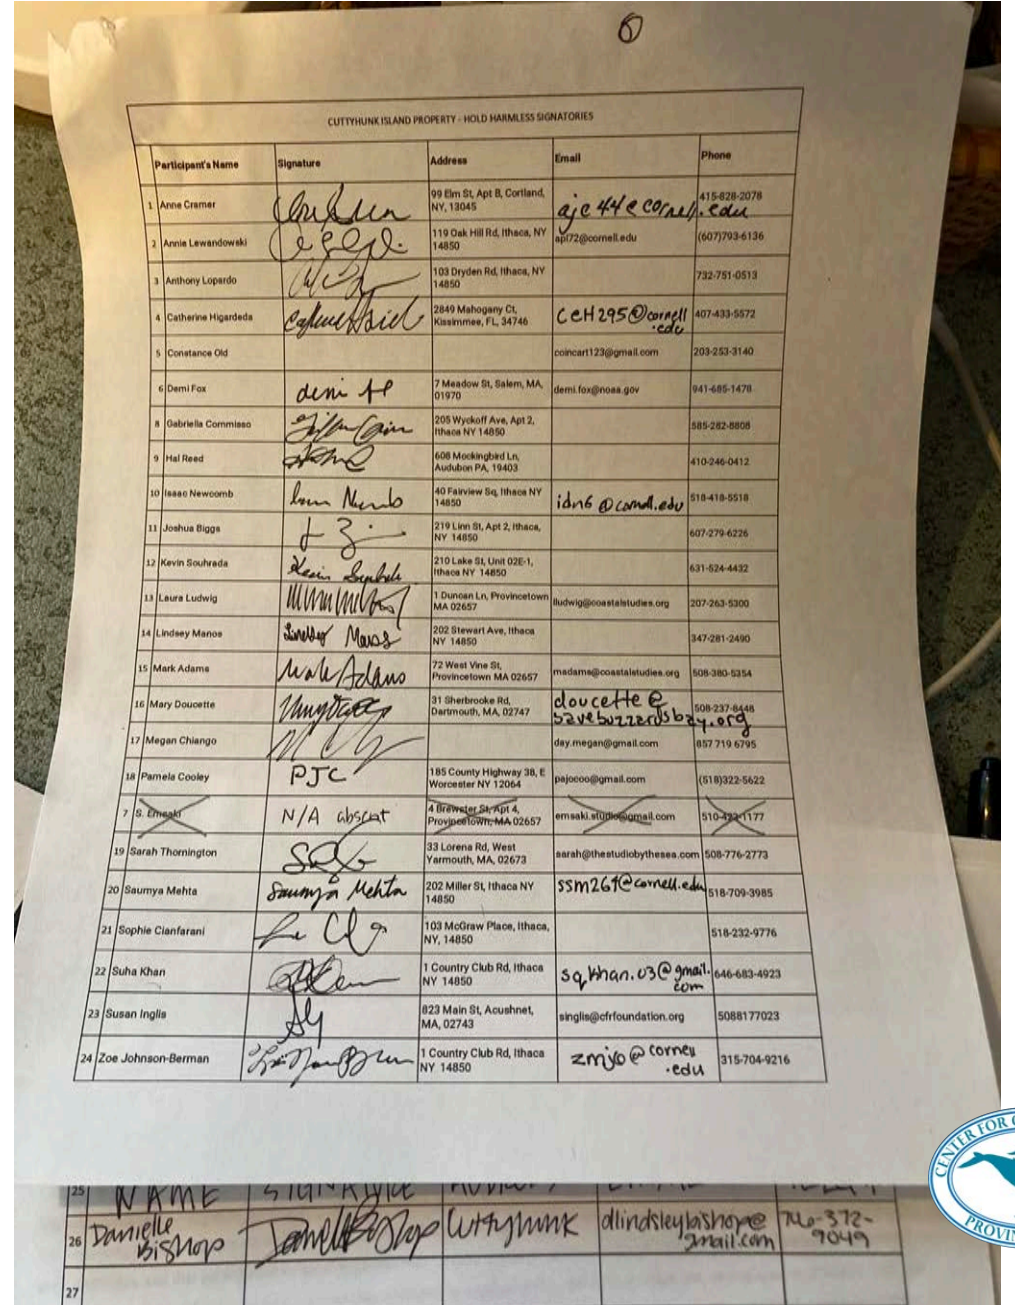 CUTTYHUNK ISLAND PROPERTY - HOLD HARMLESS SIGNATORIES
Participant's Name Signature Address Email Phone
1 Anne Cramer 99 Elm St, Apt B, Cortland, NY, 13045 ajc44@cornell.edu 415-828-2078
2 Annie Lewandowski 119 Oak Hill Rd, Ithaca, NY 14850 apl72@cornell.edu (607)793-6136
3 Anthony Lopardo 103 Dryden Rd, Ithaca, NY 14850 732-751-0513
4 Catherine Higardeda 2849 Mahogany Ct, Kissimmee, FL, 34746 CEH295@cornell.edu 407-433-5572
5 Constance Old coincart123@gmail.com 203-253-3140
6 Demi Fox demi 7 Meadow St, Salem, MA, 01970 demi.fox@noaa.gov 941-685-1478
8 Gabriella Commisso 205 Wyckoff Ave, Apt 2, Ithaca NY 14850 585-282-8808
9 Hal Reed 608 Mockingbird Ln, Audubon PA, 19403 410-246-0412
10 Isaac Newcomb 40 Fairview Sq, Ithaca NY 14850 idn6@cornell.edu 518-418-5518
11 Joshua Biggs 219 Linn St, Apt 2, Ithaca, NY 14850 607-279-6226
12 Kevin Souhrada Kevin 210 Lake St, Unit 02E-1, Ithaca NY 14850 631-624-4432
13 Laura Ludwig 1 Duncan Ln, Provincetown MA 02657 lludwig@coastalstudies.org 207-263-5300
14 Lindsey Manos Lindsey Manos 202 Stewart Ave, Ithaca NY 14850 347-281-2490
15 Mark Adams Mark Adams 72 West Vine St, Provincetown MA 02657 madams@coastalstudies.org 508-380-5354
16 Mary Doucette 31 Sherbrooke Rd, Dartmouth, MA, 02747 doucette@savebuzzardsbay.org 508-237-8448
17 Megan Chiango day.megan@gmail.com 857 719 6795
18 Pamela Cooley PJC 185 County Highway 38, E Worcester NY 12064 pajocoo@gmail.com (518)322-5622
7 S. Emsaki N/A absent 4 Brewster St, Apt 4, Provincetown, MA 02657 emsaki.studio@gmail.com 510-422-1177
19 Sarah Thornington 33 Lorena Rd, West Yarmouth, MA, 02673 sarah@thestudiobythesea.com 508-776-2773
20 Saumya Mehta Saumya Mehta 202 Miller St, Ithaca NY 14850 ssm264@cornell.edu 518-709-3985
21 Sophie Cianfarani 103 McGraw Place, Ithaca, NY, 14850 518-232-9776
22 Suha Khan 1 Country Club Rd, Ithaca NY 14850 sq.khan.03@gmail.com 646-683-4923
23 Susan Inglis 823 Main St, Acushnet, MA, 02743 singlis@cfrfoundation.org 5088177023
24 Zoe Johnson-Berman 1 Country Club Rd, Ithaca NY 14850 zmj@cornell.edu 315-704-9216
25 NAME SIGNATURE
26 Danielle Bishop Danielle Bishop Cuttyhunk dlindsleybishop@gmail.com 740-372-9049
27
CENTER FOR
PROVIN